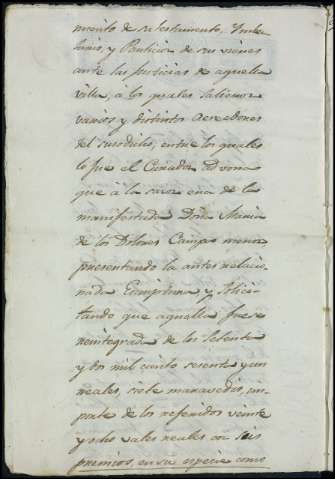 miento de su testamento, Imbe
tario, y Particion de sus vienes
ante las Justicias de aquella
villa, a los quales salieron
varios y distintos Acreedores
del susodicho, entre los quales
lo fue el Curador ad vona
que à la sazon era de la
manifestada Doña Maria
de los Dolores Campas menor
presentando la antes relacio
nada Escriptura y solici
tando que aquella fuese
reintegrada de los setenta
y dos mil ciento sesenta y un
reales, siete maravedis, im
porte de los referidos veinte
y ocho vales reales con sus
premios, en su especie como